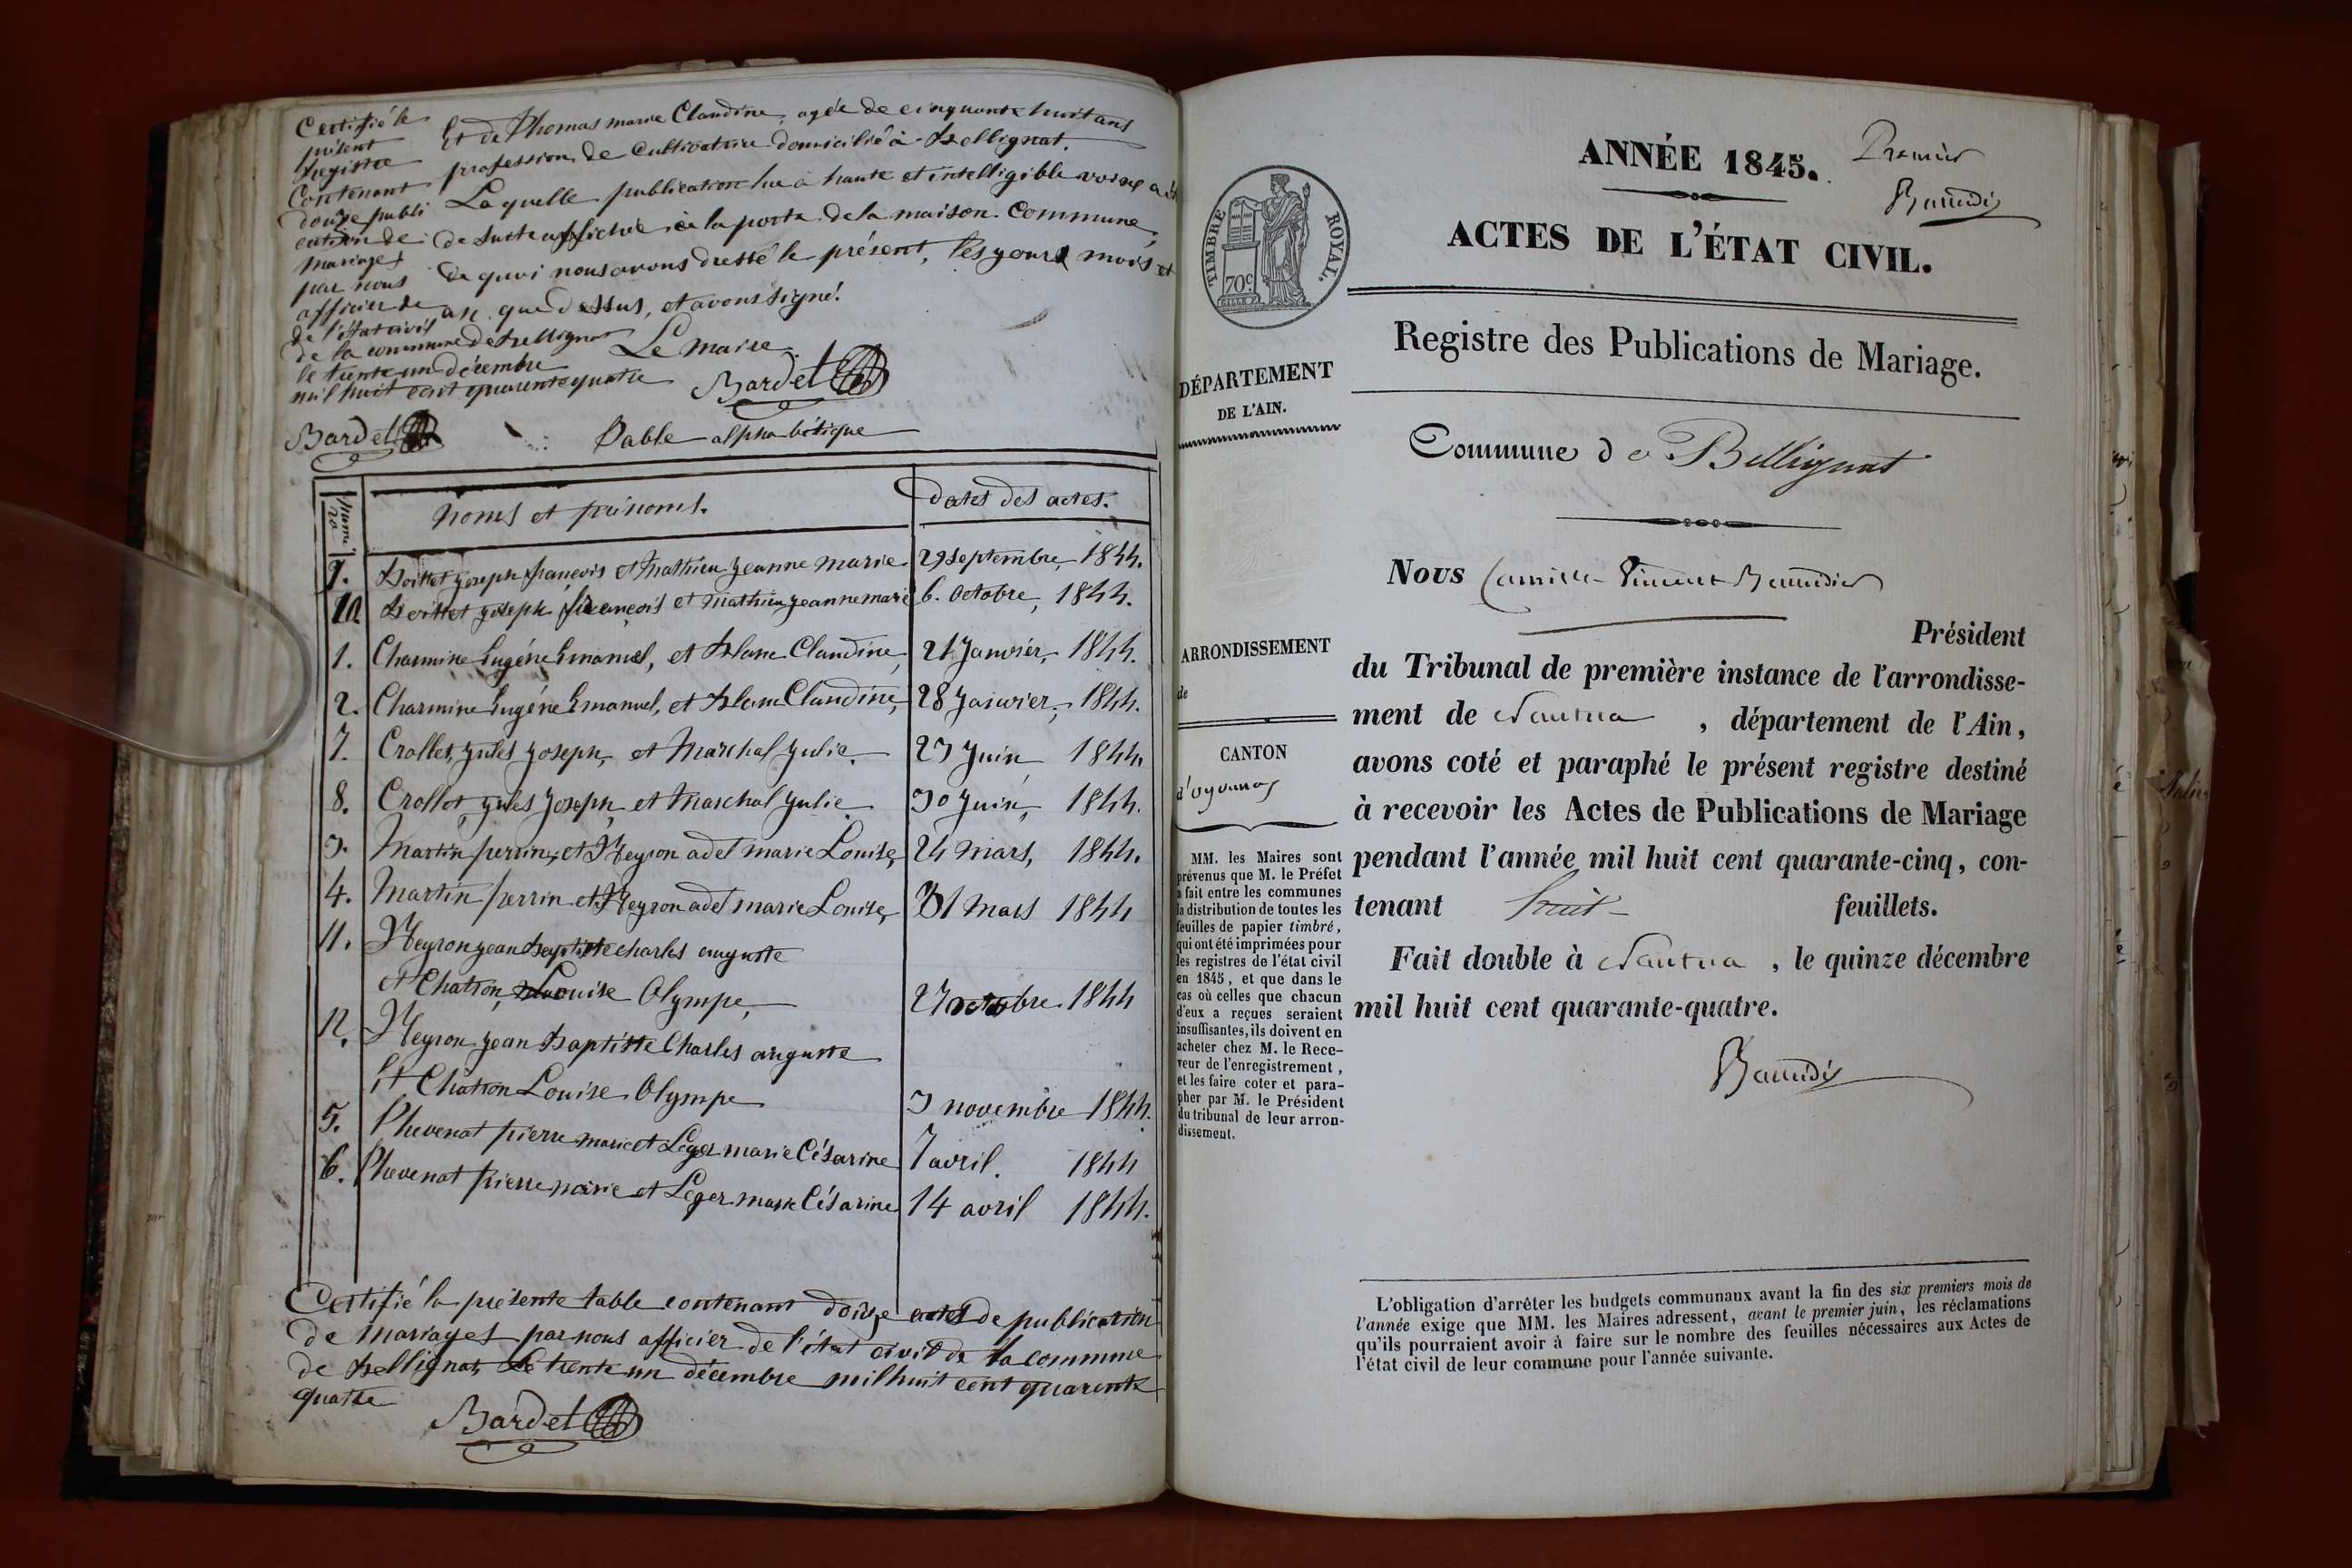 Certifié le
présent
Registre
Contenant
douze publi
cation de
Mariages
par nous
officier de
de l'état civil
de la commune de Bellignat
le trente un décembre
mil huit cent quarente quatre
Bardet
Et de Thomas marie Claudine, agée de cinquante huit ans
profession de Cultivatrice domicilié à Bellignat.
Laquelle publication lue à haute et intelligible voix, a été
de suite affichée à la porte de la maison Commune,
de quoi nous avons dressé le présent, les jours mois et
an que dessus, et avons signé.
Le Maire
Bardet
Table alphabétique
Numéro
noms et prénoms.
Dates des actes.
9. Boittet joseph françois et Mathieu jeanne marie 29 septembre 1844.
10 Boittet joseph françois et Mathieu jeanne marie 6. Octobre, 1844.
1. Charmine Eugéne Emanuel, et Blanc Claudine, 21 Janvier, 1844.
2. Charmine Eugéne Emanuel, et Blanc Claudine, 28 Janvier, 1844.
7. Crollet, jules joseph, et Marchal julie. 23 Juin 1844.
8. Crollet, jules joseph, et Marchal julie. 30 Juin, 1844.
3. Martin perrin, et Neyron adel marie Louise, 24 Mars, 1844.
4. Martin perrin et Neyron adel marie Louise, 31 Mars 1844
11. Neyron jean Baptiste charles auguste
et Chatron, Louise Olympe, 27 octobre 1844
12. Neyron jean Baptiste Charles auguste
Et Chatron Louise Olympe 3 novembre 1844.
5. Thevenat pierre marie et Léger marie Césarine 7 avril. 1844
6. Thevenat pierre marie et Léger marie Césarine 14 avril 1844.
Certifié la présente table contenant douze actes de publication
de mariages par nous officier de l'état civil de la commune
de Bellignat, Le trente un décembre mil huit cent quarente
quatre
Bardet
TIMBRE ROYAL.
70c.
ANNÉE 1845.
Premier
ACTES DE L'ÉTAT CIVIL.
Registre des Publications de Mariage.
DÉPARTEMENT
DE L'AIN.
Commune de Bellignat
ARRONDISSEMENT
de
CANTON
d'oyonnax
MM. les Maires sont
prévenus que M. le Préfet
a fait entre les communes
la distribution de toutes les
feuilles de papier timbré,
qui ont été imprimées pour
les registres de l'état civil
en 1845, et que dans le
cas où celles que chacun
d'eux a reçues seraient
insuffisantes, ils doivent en
acheter chez M. le Rece-
veur de l'enregistrement,
et les faire coter et para-
pher par M. le Président
du tribunal de leur arron-
dissement.
Nous Camille Vincent
Président
du Tribunal de première instance de l'arrondisse-
ment de Nantua, département de l'Ain,
avons coté et paraphé le présent registre destiné
à recevoir les Actes de Publications de Mariage
pendant l'année mil huit cent quarante-cinq, con-
tenant huit feuillets.
Fait double à Nantua, le quinze décembre
mil huit cent quarante-quatre.
L'obligation d'arrêter les budgets communaux avant la fin des six premiers mois de
l'année exige que MM. les Maires adressent, avant le premier juin, les réclamations
qu'ils pourraient avoir à faire sur le nombre des feuilles nécessaires aux Actes de
l'état civil de leur commune pour l'année suivante.